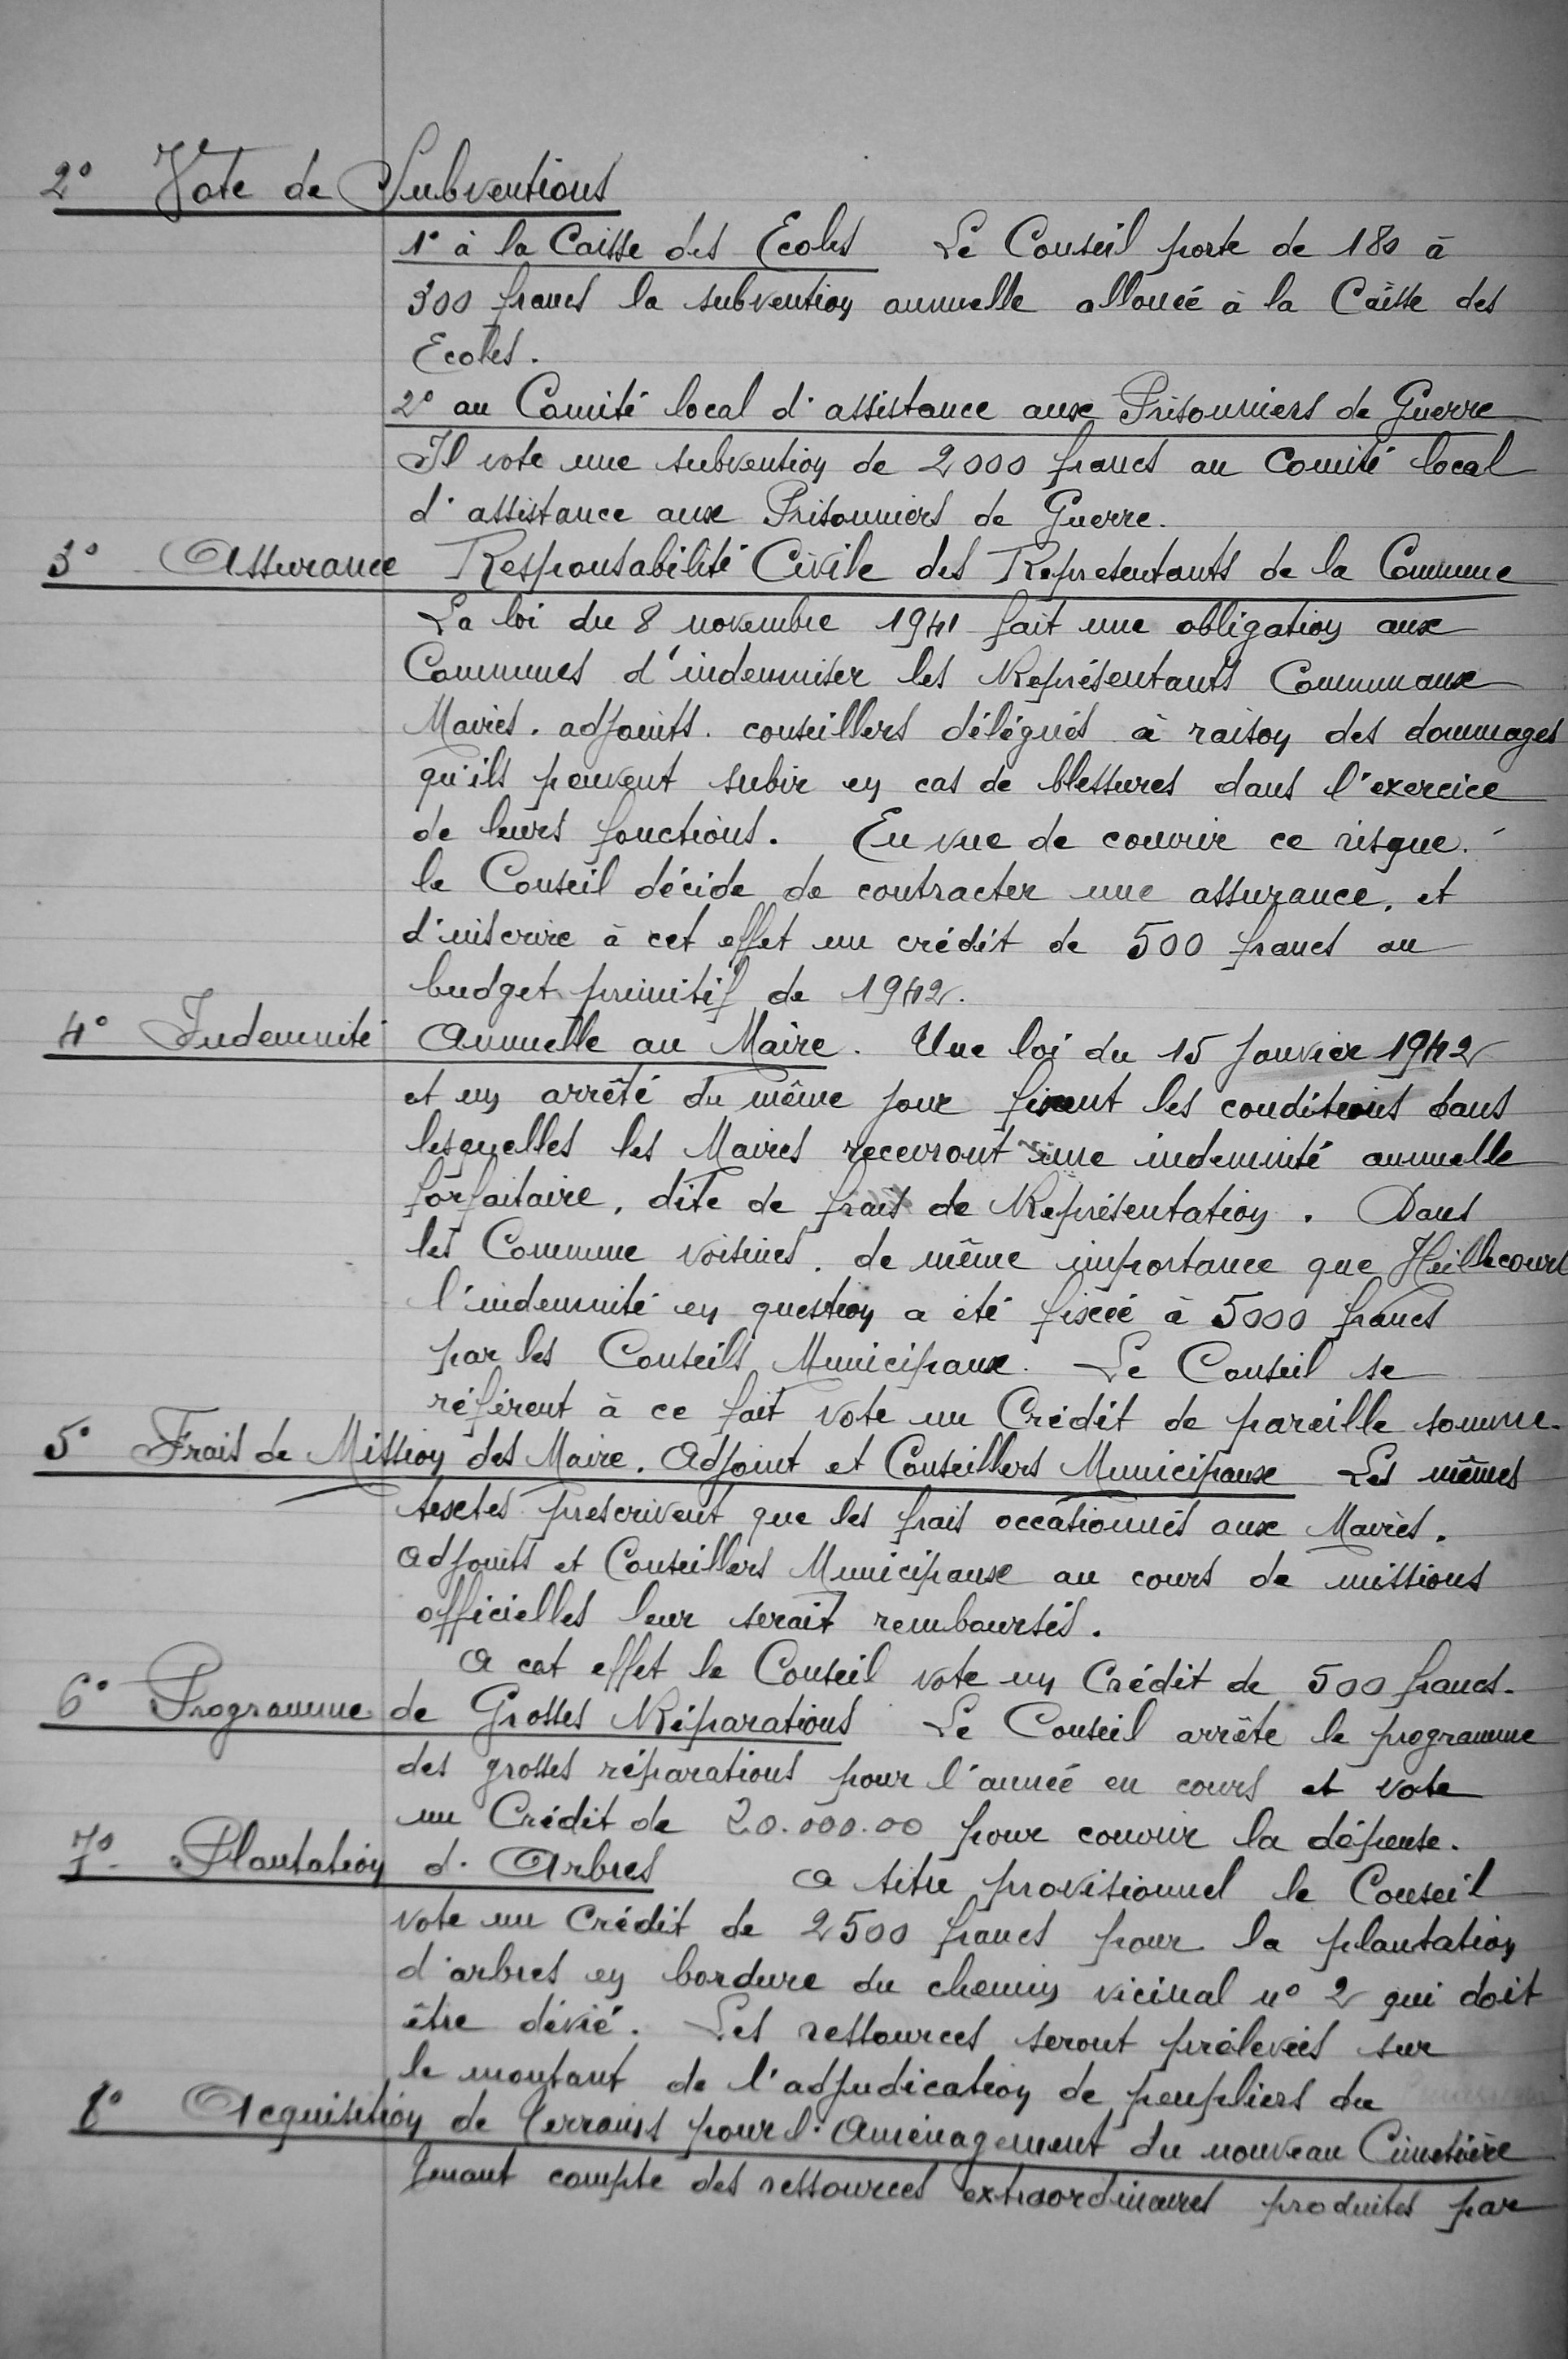 2° Vote de Subventions
1° à la Caisse des Ecoles Le Conseil porte de 180 à
300 francs la subvention annuelle allouée à la Caisse des
Ecoles.
2° au Comité local d'assistance aux Prisonniers de Guerre
Il vote une subvention de 2000 francs au Comité local
d'assistance aux Prisonniers de Guerre.
3° Assurance Responsabilité Civile des Représentants de la Commune
La loi du 8 novembre 1941 fait une obligation aux
Communes d'indemniser les Représentants Communaux
Maires. adjoints. conseillers délégués à raison des dommages
qu'ils peuvent subir en cas de blessures dans l'exercice
de leurs fonctions. En vue de couvrir ce risque.
le Conseil décide de contracter une assurance, et
d'inscrire à cet effet un crédit de 500 francs au
budget primitif de 1942.
4° Indemnité Annuelle au Maire. Une loi du 15 Janvier 1942
et un arrêté du même jour fixent les conditions dans
lesquelles les Maires recevront une indemnité annuelle
forfaitaire, dite de frais de Représentation. Dans
les Commune voisines. de même importance que Heillecourt
l'indemnité en question a été fixée à 5000 francs
par les Conseils Municipaux. Le Conseil se
référent à ce fait vote un Crédit de pareille somme.
5° Frais de Mission des Maire. Adjoint et Conseillers Municipaux Les mêmes
textes prescrivent que les frais occationnés aux Maires.
Adjoints et Conseillers Municipaux au cours de missions
officielles leur serait remboursés.
A cet effet le Conseil vote un Crédit de 500 francs.
6° Programme de Grosses Réparations Le Conseil arrête le programme
des grosses réparations pour l'année en cours et vote
un Crédit de 20.000.00 pour couvrir la dépense.
7° Plantation d'Arbres A titre provisionnel le Conseil
vote un Crédit de 2500 francs pour la plantation
d'arbres en bordure du chemin vicinal n° 2 qui doit
être dévié. Les ressources seront prélevées sur
le montant de l'adjudication de peupliers du
8° Acquisition de Terrains pour l'Aménagement du nouveau Cimetière
Tenant compte des ressources extraordinaires produites par